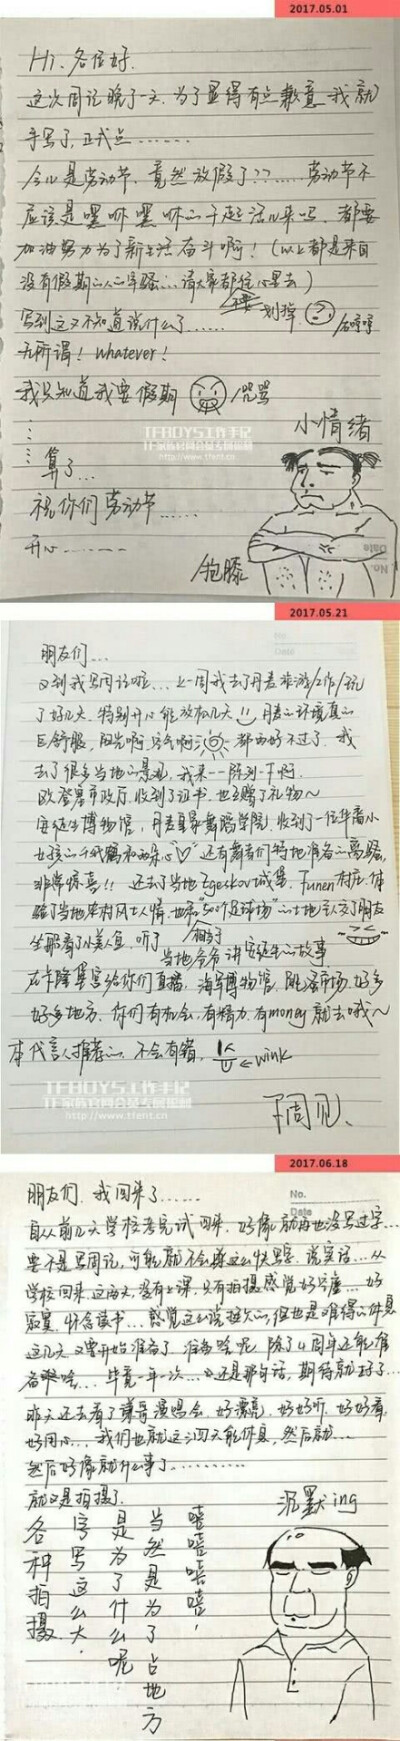 2017.05.01
Hi. 各位好.
这次周记晚了一天.为了显得有点歉意.我就
手写了,正式点……
今儿是劳动节.竟然放假了??……劳动节不
应该是嘿咻嘿咻的干起活儿来吗.都要
加油努力为了新生活奋斗啊!(以上都是来自
没有假期的人的牢骚…请大家都往心里去)
不要 划掉
写到这又不知道说什么了…… /右哼哼
无所谓! whatever!
我只知道我要假期 /咒骂
小情绪
算了…
祝你们劳动节……
开心……
/抱膝
TFBOYS工作手记
TF家族官网会员专属福利
http://www.tfent.cn
Date
No.
2017.05.21
Date
朋友们…
又到我写周记啦…上一周我去了丹麦旅游/工作/玩
了好几天.特别开心能放松几天 丹麦的环境真的
巨舒服,阳光啊,空气啊 都再好不过了.我
去了很多当地的景观,我来一一陈列一下啊.
欧登塞市政厅.收到了证书.也互赠了礼物~
安徒生博物馆,丹麦皇家舞蹈学院.收到了一位华裔小
女孩的千纸鹤和两朵 还有舞者们特地准备的
非常惊喜!! 还去了当地Egeskov城堡.Funen村庄.体
验了当地农村风土人情.
相当于"500个足球场"的土地
坐那看了小美人鱼.听了
当地爷爷讲安徒生的故事
在卡隆堡宫给你们直播,海军博物馆,跳蚤市场.好多
好多地方.你们有机会,有精力.有money就去哦~
本代言人推荐的.不会有错. ←wink
王周见、
TFBOYS工作手记
TF家族官网会员专属福利
http://www.tfent.cn
2017.06.18
No.
Date
朋友们.我回来了……
自从前几天学校考完试回来.好像就再也没写过字…
要不是写周记,可能就不会这么快写字.说实话…从
学校回来这两天,没有上课.只有拍摄感觉好空虚…好
寂寞.怀念读书…感觉这么说挺欠的,但也是难得的休息
这几天又要开始准备了.准备啥呢.除了4周年还能准
备啥…毕竟一年一次…还是那句话,期待就好了…
昨天还去看了 演唱会.好漂亮.好好听.好好看,
好用心…我们也就这三四天能休息,然后就…
然后好像就什么事了…………
就又是拍摄了.
各种拍摄.
字写这么大.
是为了什么呢
当然是为了占地方
嘻嘻嘻嘻.
沉默ing